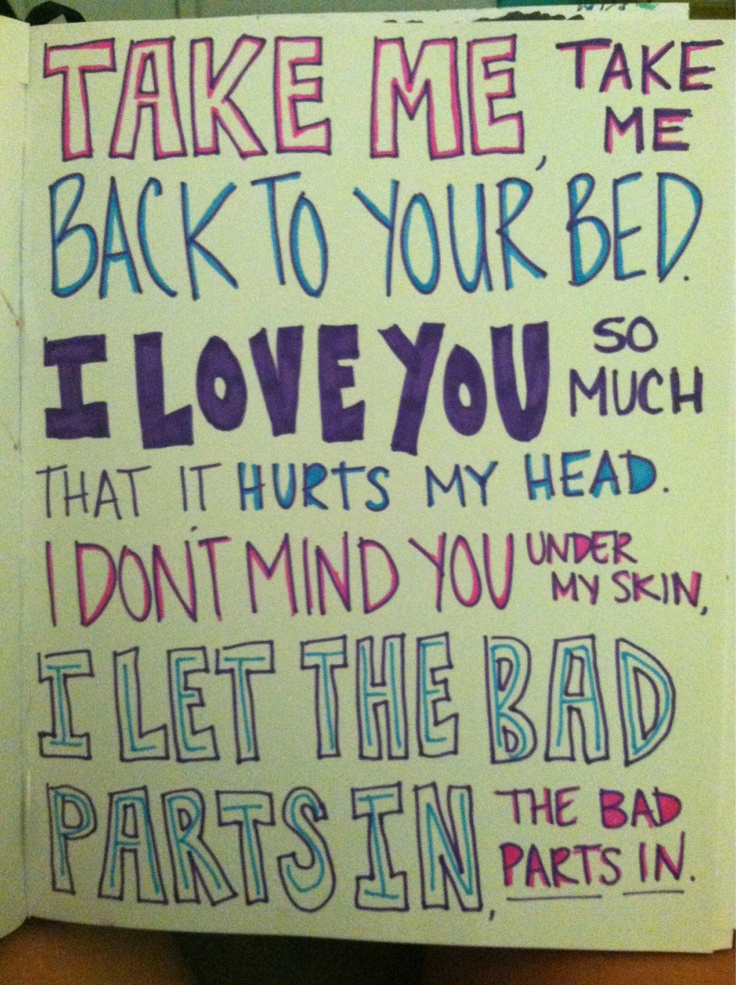 TAKE ME, TAKE ME
BACK TO YOUR BED.
I LOVE YOU SO MUCH
THAT IT HURTS MY HEAD.
I DON'T MIND YOU UNDER MY SKIN,
I LET THE BAD
PARTS IN, THE BAD PARTS IN.